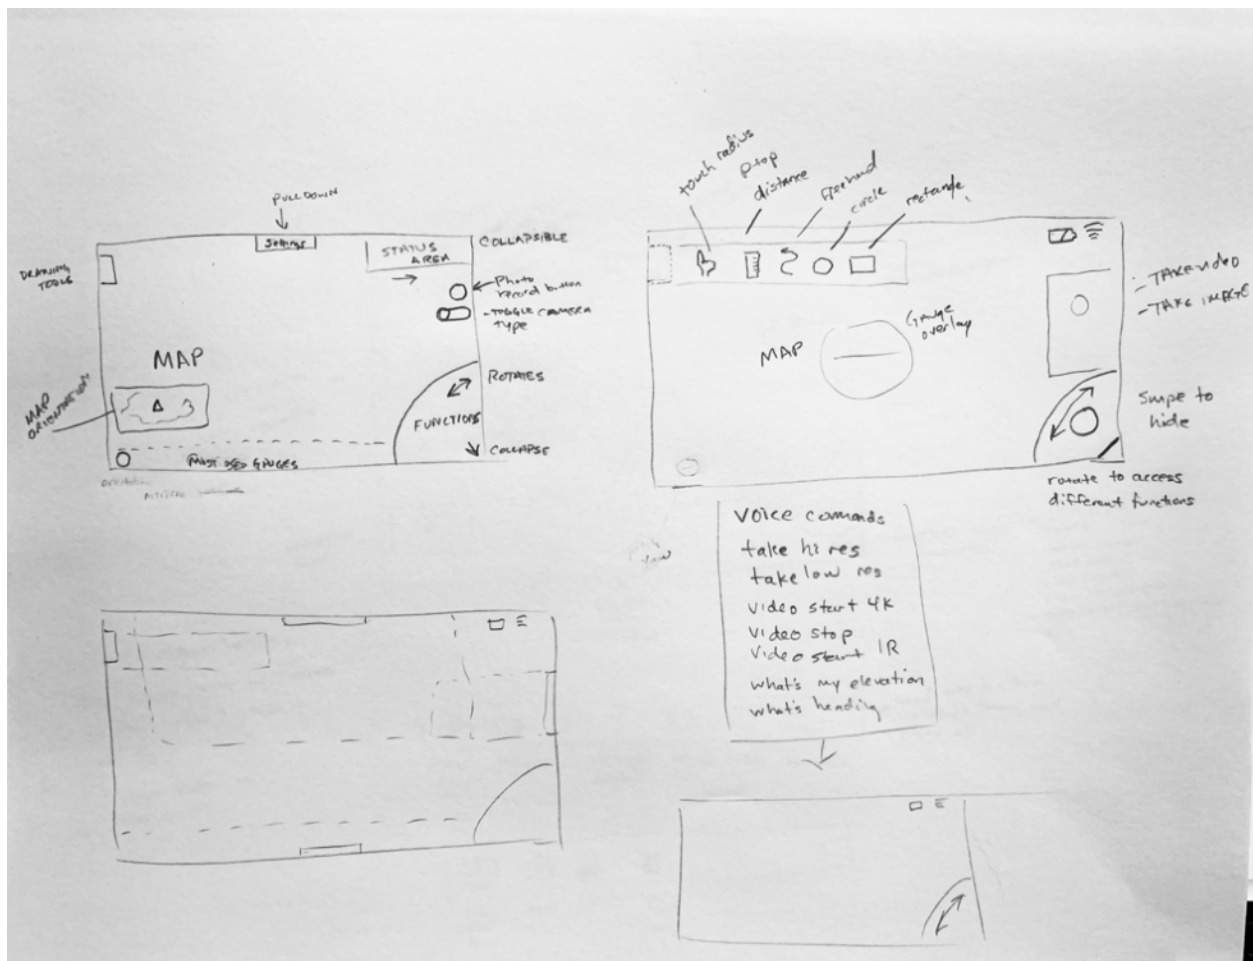 PULLDOWN
Settings
STATUS
AREA
COLLAPSIBLE
DRAWING
TOOLS
Photo
record button
-TOGGLE CAMERA
type
MAP
MAP
ORIENTATION
ROTATES
FUNCTIONS
COLLAPSE
MOST USED GAUGES
touch radius
ptop
distance
freehand
circle
rectangle
- TAKE video
- TAKE IMAGE
MAP
Gauge
overlay
Swipe to
hide
rotate to access
different functions
Voice comands
take hi res
take low res
video start 4K
Video stop
Video start IR
what's my elevation
what's heading